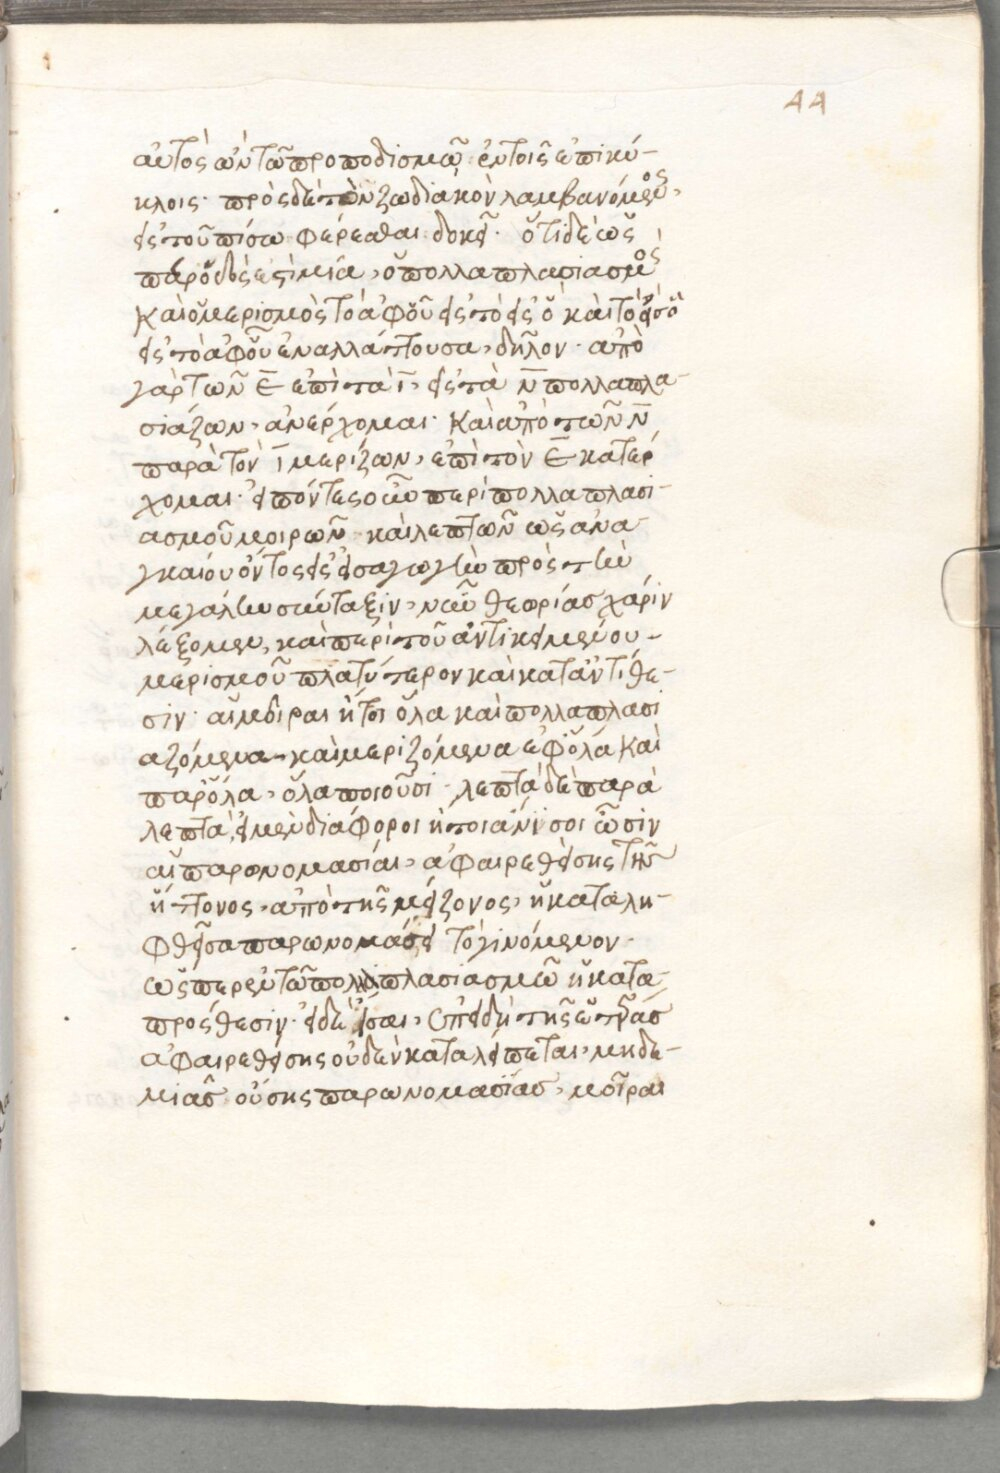 44
αὐτὸς ὢν τῷ προποδισμῷ ἐν τοῖς ἐπικύ-
κλοις· πρὸς δὲ τὸν ζωδιακὸν λαμβανόμενος,
εἰς τοὐπίσω φέρεσθαι δοκεῖ· ὅτι δὲ ὡς
πάροδός ἐστι μία, ὁ πολλαπλασιασμὸς
καὶ ὁ μερισμὸς τὸ ἀφ' οὗ εἰς τὸ εἰς ὃ καὶ τὸ εἰς ὃ
εἰς τὸ ἀφ' οὗ ἐναλλάττουσα, δῆλον· ἀπὸ
γὰρ τῶν ε̄ ἐπὶ τὰ ῑ, εἰς τὰ ν̄ πολλαπλα-
σιάζων, ἀνέρχομαι· καὶ ἀπὸ τῶν ν̄
παρὰ τὸν ῑ μερίζων, ἐπὶ τὸν ε̄ κατέρ
χομαι· εἰπόντες οὖν περὶ πολλαπλασι-
ασμοῦ μοιρῶν καὶ λεπτῶν ὡς ἀνα-
γκαίου ὄντος εἰς εἰσαγωγὴν πρὸς τὴν
μεγάλην σύνταξιν, νῦν θεωρίας χάριν
λέξομεν, καὶ περὶ τοῦ ἀντικειμένου
μερισμοῦ πλατύτερον καὶ κατ' ἀντίθε-
σιν· αἱ μοῖραι ἤτοι ὅλα καὶ πολλαπλασι
αζόμενα καὶ μεριζόμενα ἐφ' ὅλα καὶ
παρ' ὅλα, ὅλα ποιοῦσι· λεπτὰ δὲ παρὰ
λεπτὰ, εἰ μὲν διάφοροι ἢ ποιαὶ ἄνισοι ὦσιν
αἱ παρονομασίαι, ἀφαιρεθείσης τῆς
ἥττονος, ἀπὸ τῆς μείζονος, ἡ καταλη-
φθεῖσα παρωνομάσει τὸ γινόμενον·
ὥσπερ ἐν τῷ πολλαπλασιασμῷ ἡ κατὰ
πρόσθεσιν· εἰ δὲ ἴσαι, ἐπειδὴ τῆς
ἀφαιρεθείσης οὐδὲν καταλείπεται, μηδε-
μιᾶς οὔσης παρωνομασίας, μοῖραι